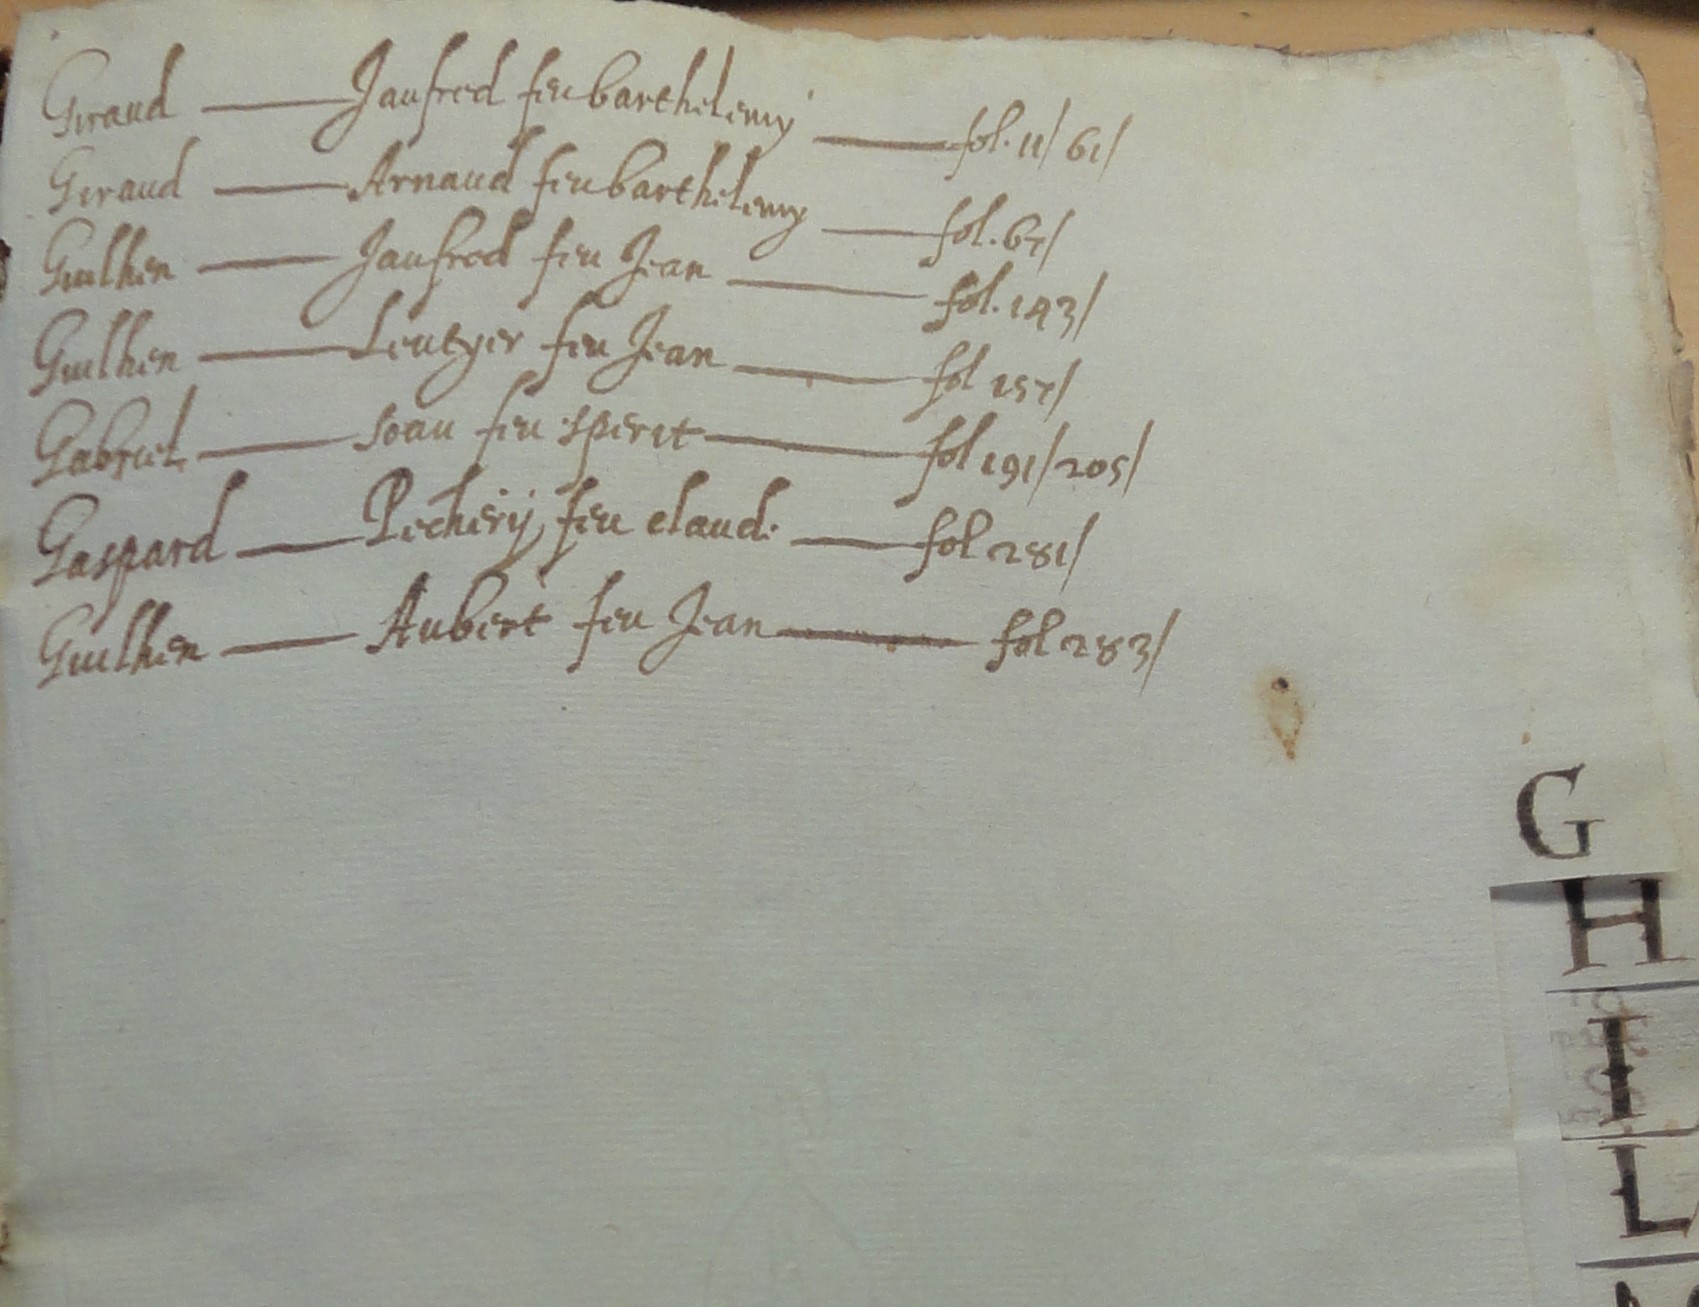 Giraud — Jaufred feu barthelemy — fol. 11/ 61/
Giraud — Arnaud feu barthelemy — fol. 67/
Guilhen — Jaufred feu Jean — fol. 143/
Guilhen — Leutyer feu Jean — fol 157/
Gabriel — Joau feu sperit — fol 191/ 205/
Gaspard — Pechery feu claude — fol 281/
Guilhen — Aubert feu Jean — fol 283/
G
H
I
L